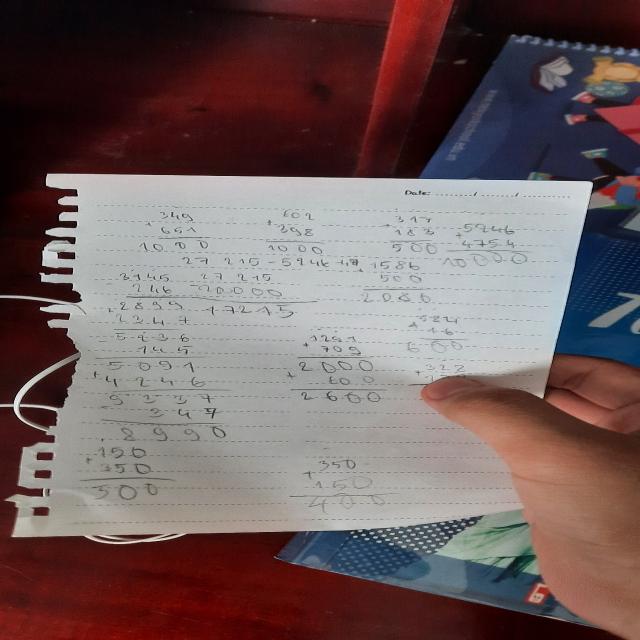 Date:
349
+ 651
1000
602
+ 398
1000
317
+ 183
500
5246
+ 4754
10000
27 215 - 5246 + 4
3145
246
2899
27 215
10000
17215
1586
500
2086
2347
5236
145
5091
+ 4246
9337
347
8990
1291
+ 709
2000
+ 600
2600
584
+ 16
600
322
+ 150
+ 350
500
350
+ 150
400